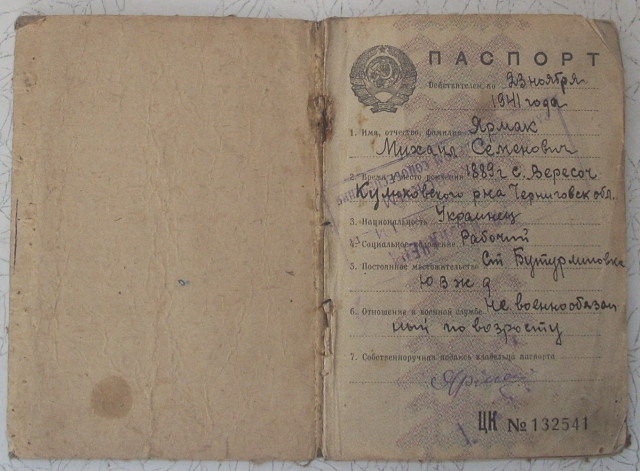 ПАСПОРТ
Действителен по 23 ноября
1941 года
1. Имя, отчество, фамилия Ярмак
Михаил Семенович
2. Время и место рождения 1889 г с. Вересоч
Куликовского р на Черниговск обл.
3. Национальность Украинец
4. Социальное положение Рабочий
5. Постоянное местожительство Ст Бутурлиновка
Ю В ж д
6. Отношение к военной службе Не военнообязан
ный по возросту
7. Собственноручная подпись владельца паспорта
ЦК № 132541